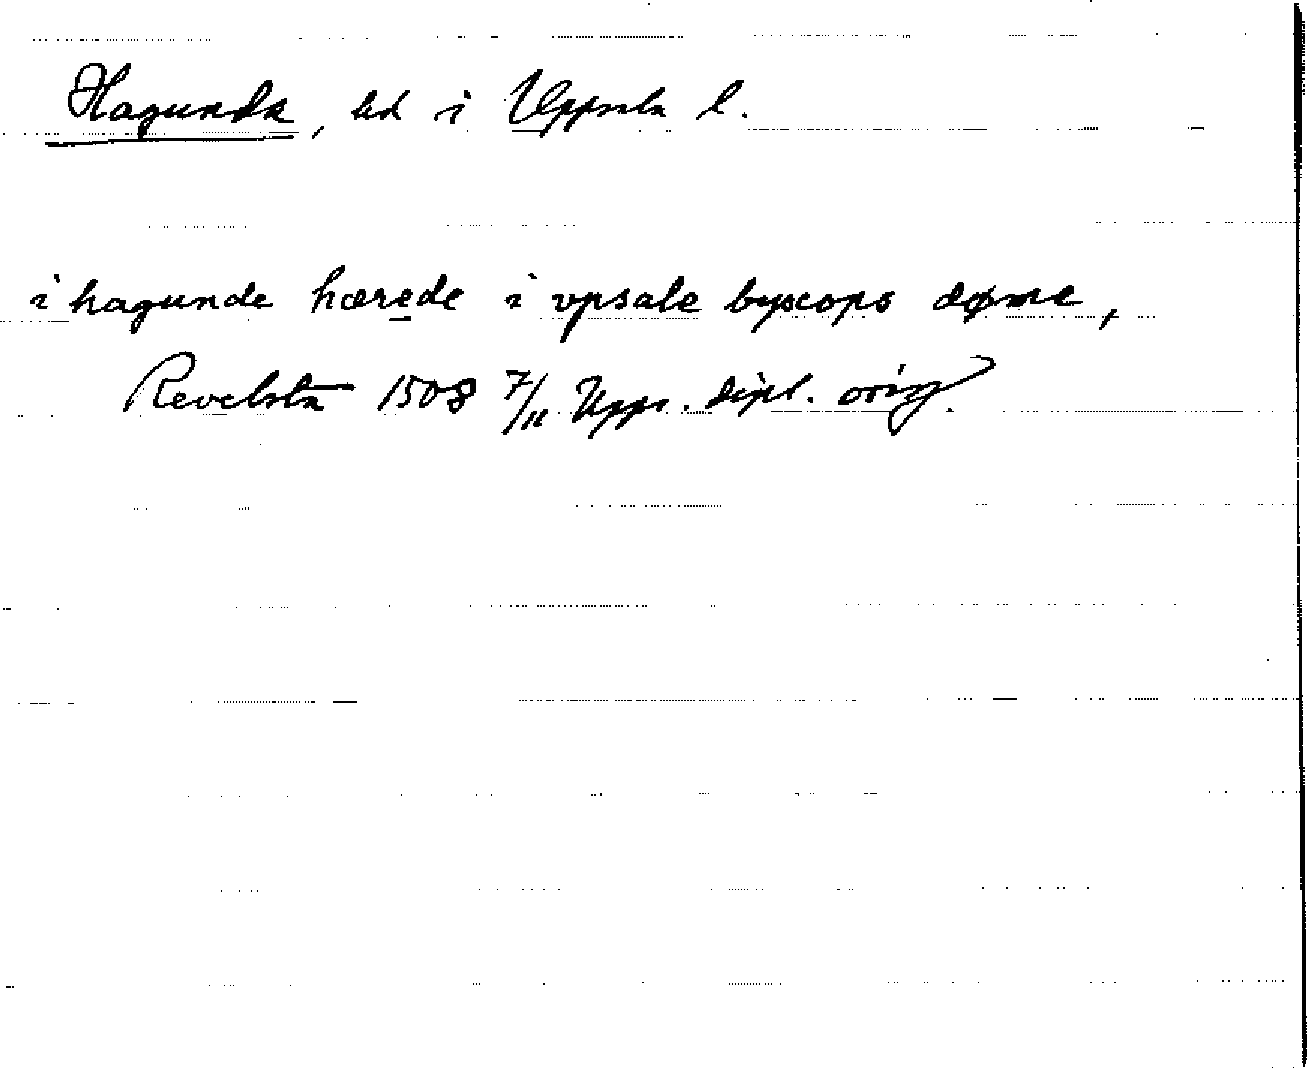 Hagunda, hd i Uppsala l.
i hagunde hærede i vpsale byscops døme,
Revelsta 1508 7/11 Upps. dipl. orig.